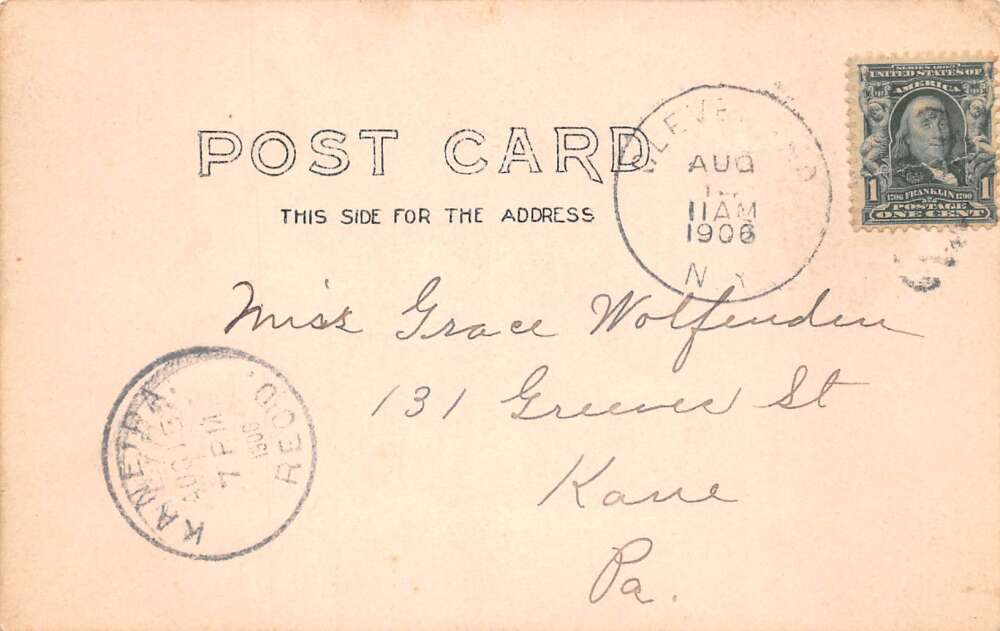 POST CARD
THIS SIDE FOR THE ADDRESS
CLEVELAND
AUG
11 AM
1906
N.Y.
SERIES 1902
UNITED STATES OF
AMERICA
1 1
1706 FRANKLIN 1790
POSTAGE
ONE CENT
Miss Grace Wolfenden
131 Greeves St
Kane
Pa.
KANE, PA.
AUG
7 PM
1906
REC'D.